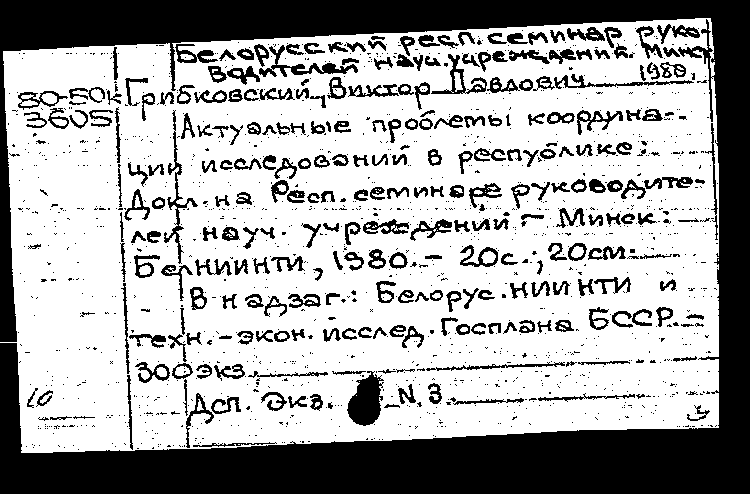 Белорусский респ. семинар руко-
водителей науч. учреждений. Минск,
1980.
80-50к
3605
Грибковский, Виктор Павлович.
Актуальные проблемы координа-
ции исследований в республике:
Докл. на Респ. семинаре руководите-
лей науч. учреждений. - Минск:
БелНИИНТИ, 1980. - 20с.; 20см.
В надзаг.: Белорус. НИИ НТИ и
техн.-экон. исслед. Госплана БССР. -
300экз.
Дсп. Экз. N 3.
10